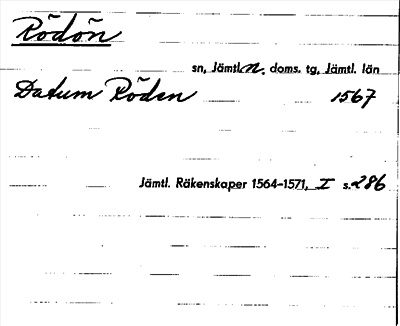 Rödön
sn, Jämtl. n. doms. tg, Jämtl. län
Datum Röden 1567
Jämtl. Räkenskaper 1564-1571, I s. 286